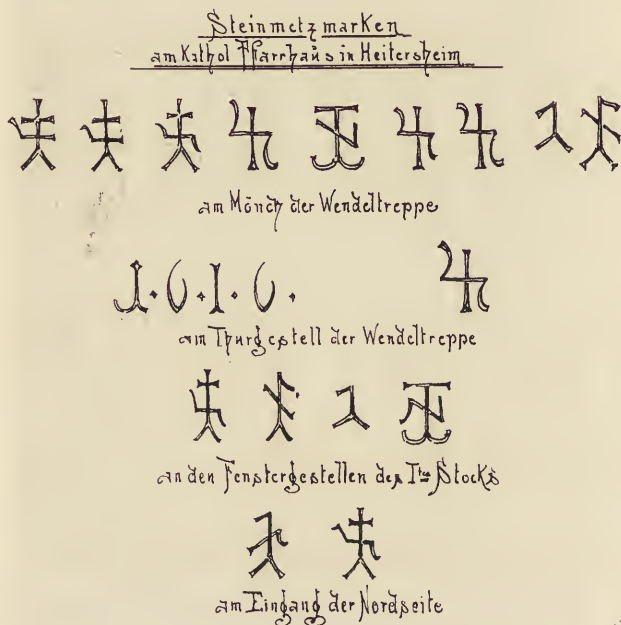 Steinmetzmarken
am Kathol Pfarrhaus in Heitersheim
am Mönch der Wendeltreppe
1.6.1.6.
am Thurgestell der Wendeltreppe
an den Fenstergestellen des Iten Stocks
am Eingang der Nordseite